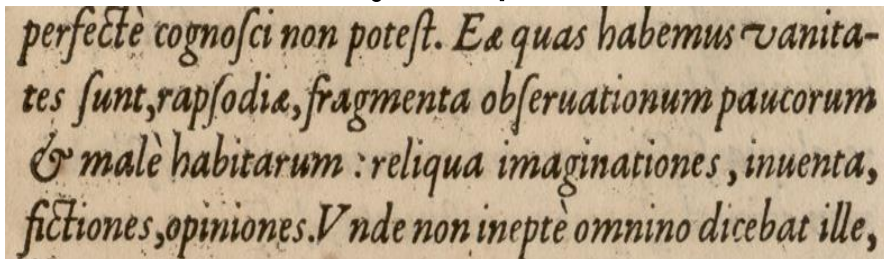 perfectè cognoſci non poteſt. Eæ quas habemus vanita-
tes ſunt, rapſodiæ, fragmenta obſeruationum paucorum
& malè habitarum : reliqua imaginationes, inuenta,
fictiones, opiniones. Vnde non ineptè omnino dicebat ille,